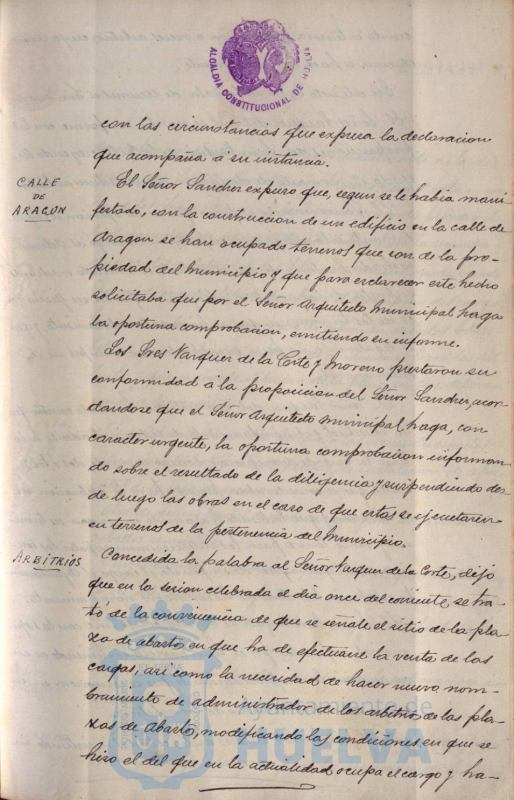 ALCALDIA CONSTITUCIONAL DE HUELVA
con las circunstancias que expresa la declaracion
que acompaña á su instancia.
CALLE
DE
ARAGON
El Señor Sanchez expuso que, segun se le habia mani-
festado, con la construccion de un edificio en la calle de
Aragon se han ocupado terrenos que son de la pro-
piedad del Municipio y que para esclarecer este hecho
solicitaba que por el Señor Arquitecto Municipal haga
la oportuna comprobacion, emitiendo su informe.
Los Sres Vazquez de la Corte y Moreno prestaron su
conformidad á la proposicion del Señor Sanchez, acor-
dandose que el Señor Arquitecto municipal haga, con
caracter urgente, la oportuna comprobacion informan-
do sobre el resultado de la diligencia y suspendiendo des-
de luego las obras en el caso de que estas se ejecutaren
en terrenos de la pertenencia del Municipio.
ARBITRIOS
Concedida la palabra al Señor Vazquez de la Corte, dijo
que en la sesion celebrada el dia once del corriente, se tra-
tó de la conveniencia de que se señale el sitio de la pla-
za de abasto, en que ha de efectuarse la venta de las
cargas, asi como la necesidad de hacer nuevo nom-
bramiento de administrador de los arbitrios de las pla-
zas de Abasto, modificando las condiciones en que se
hizo el del que en la actualidad ocupa el cargo y ha-
Ayuntamiento de
HUELVA